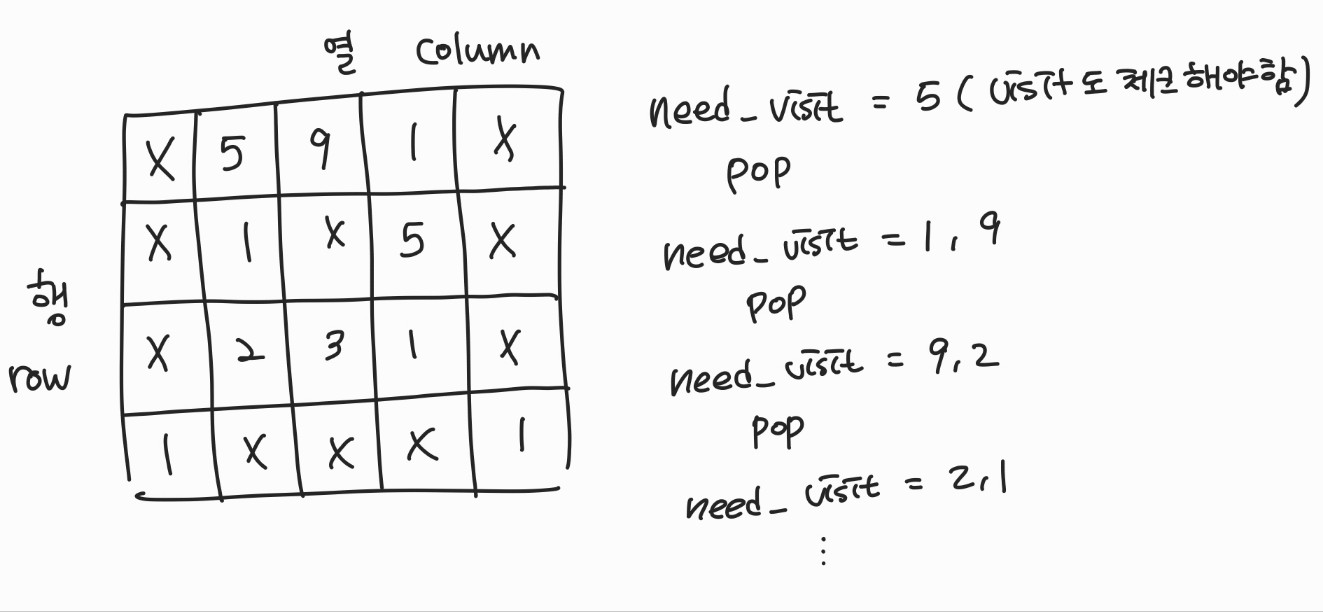 열 column
X 5 9 1 X
X 1 X 5 X
행
row
X 2 3 1 X
1 X X X 1
need_visit = 5 (visit도 체크해야함)
pop
need_visit = 1, 9
pop
need_visit = 9, 2
pop
need_visit = 2, 1
⋮